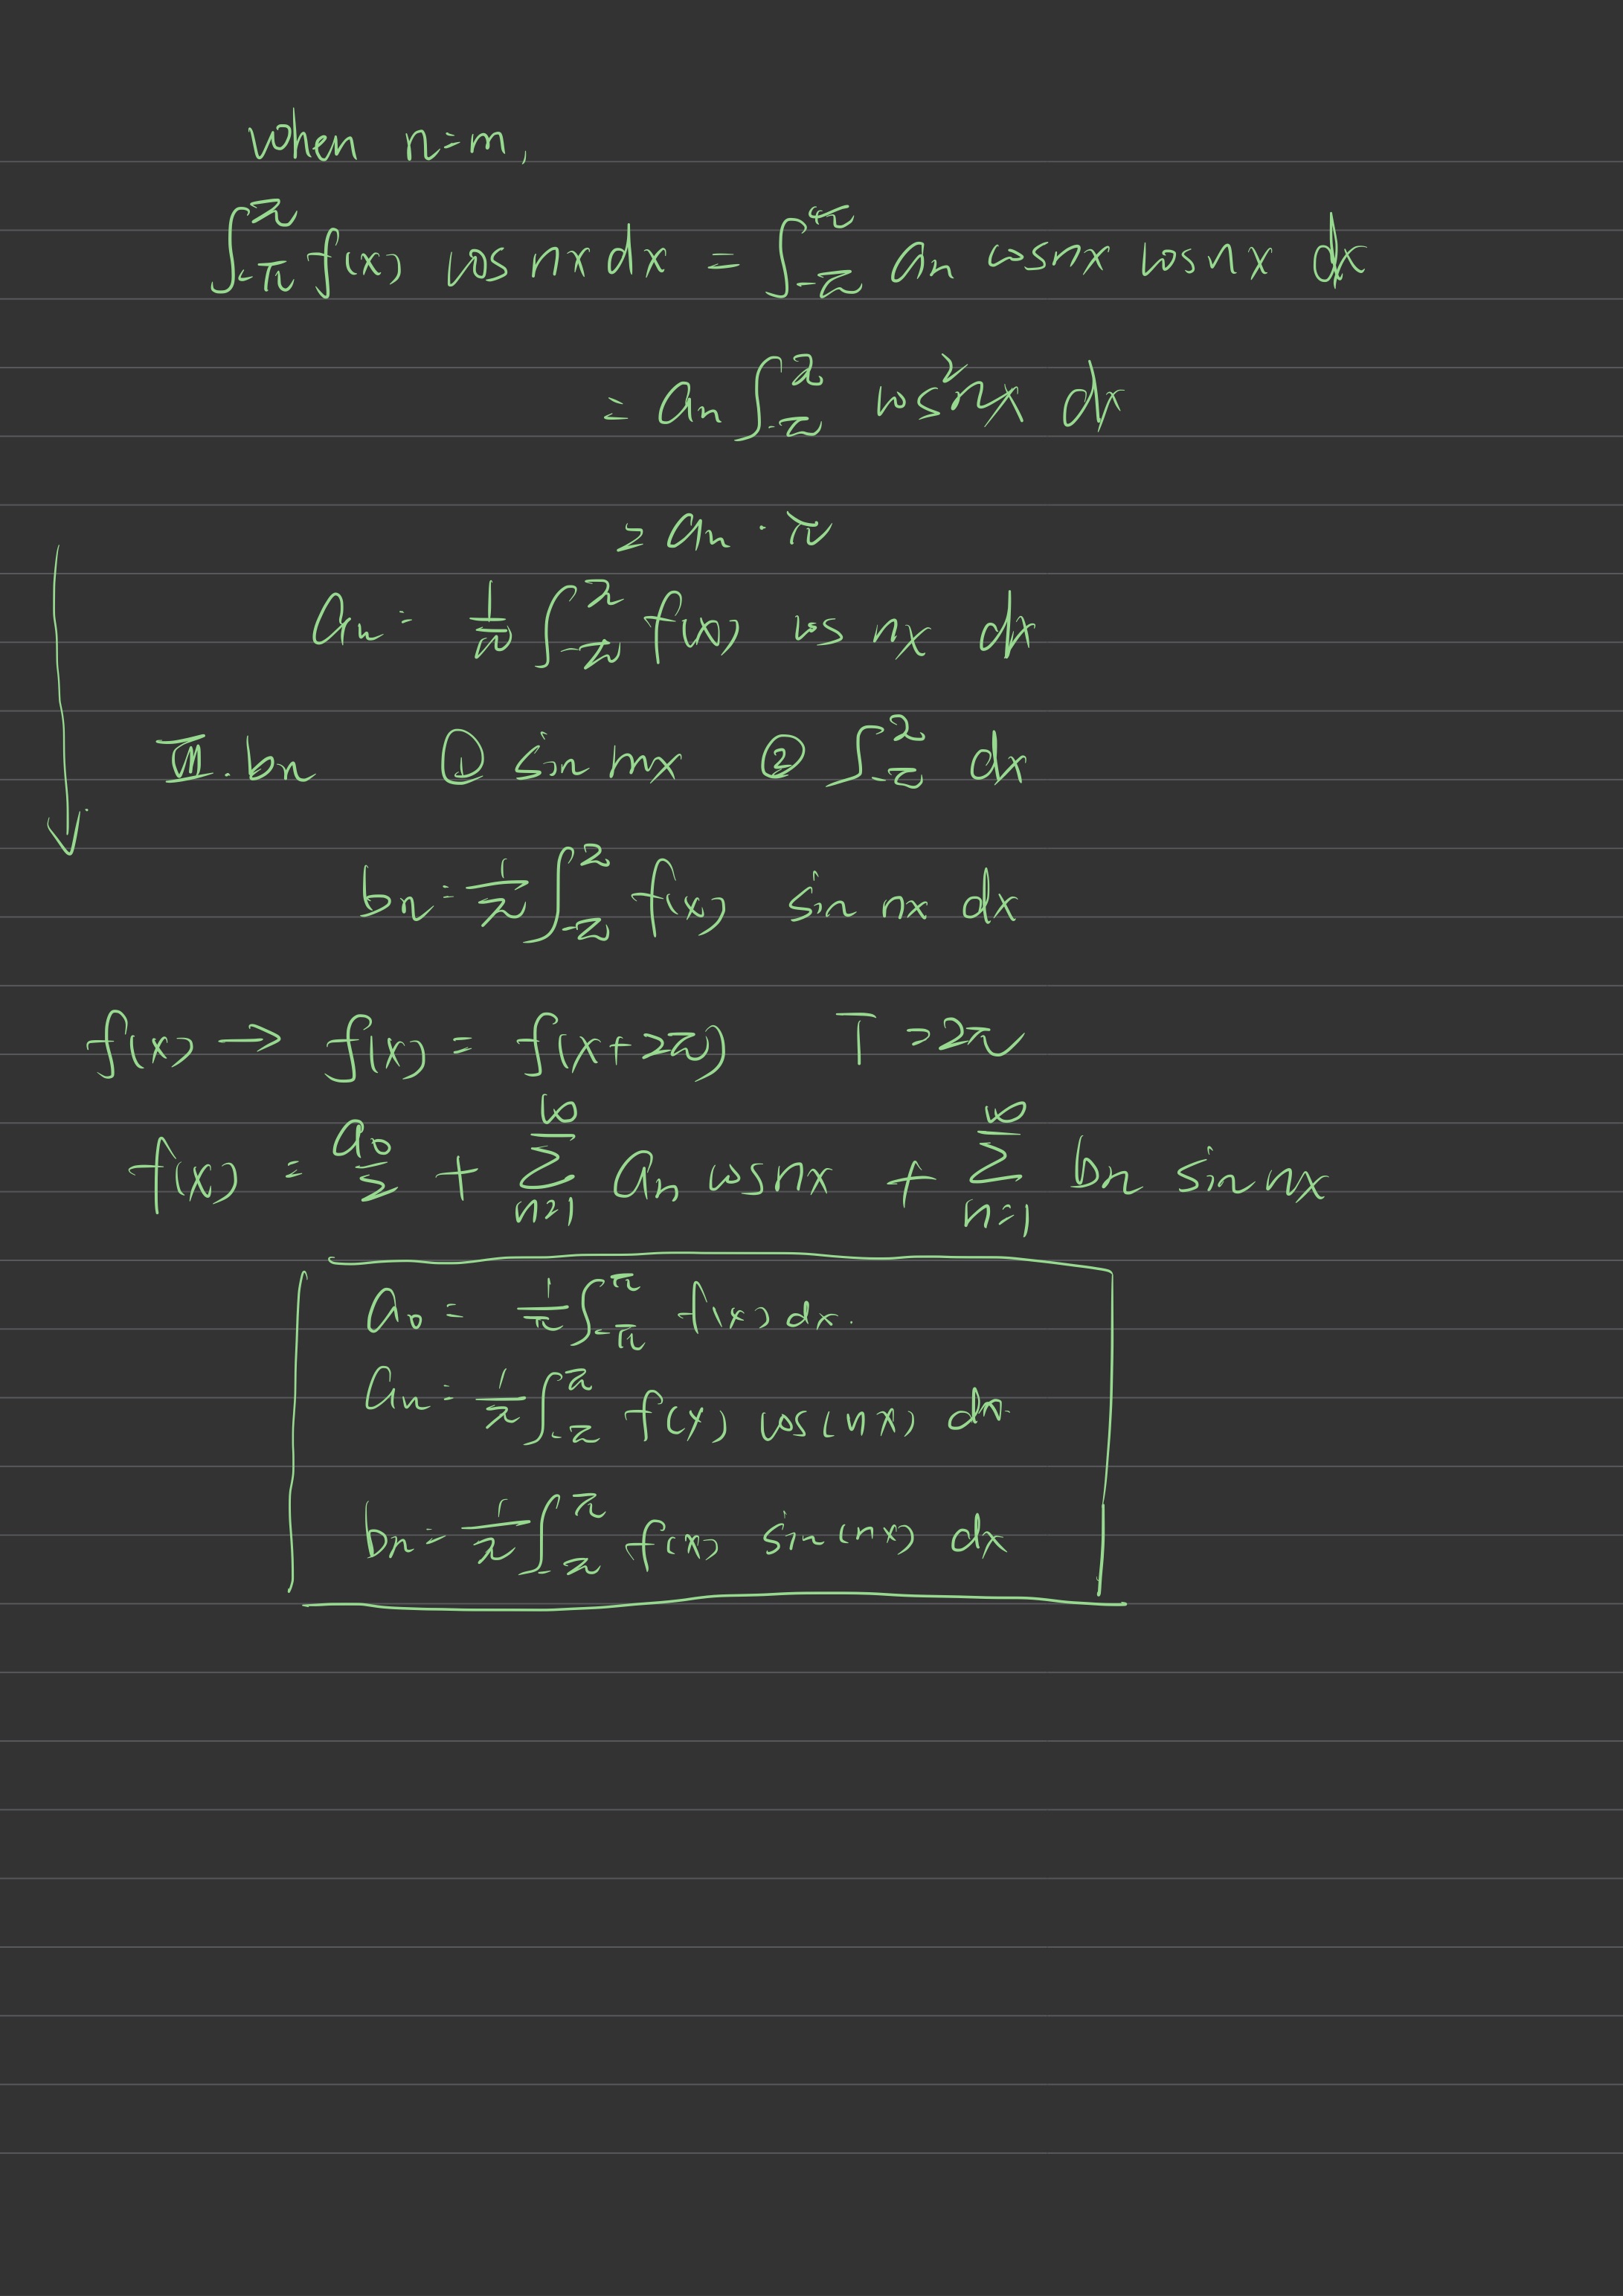 when n=m,
∫_{-π}^{π} f(x) cos nx dx = ∫_{-π}^{π} an cos nx cos nx dx
= an ∫_{-π}^{π} cos²nx dx
= an · π
an = 1/π ∫_{-π}^{π} f(x) cos nx dx
Ⅲ. bn ① sin mx ② ∫_{-π}^{π} dx
bn = 1/π ∫_{-π}^{π} f(x) sin nx dx
f(x) → f(x) = f(x+2π) T=2π
f(x) = a0/2 + ∑_{n=1}^{∞} an cos nx + ∑_{n=1}^{∞} bn sin nx
a0 = 1/π ∫_{-π}^{π} f(x) dx.
an = 1/π ∫_{-π}^{π} f(x) cos(nx) dx
bn = 1/π ∫_{-π}^{π} f(x) sin(nx) dx